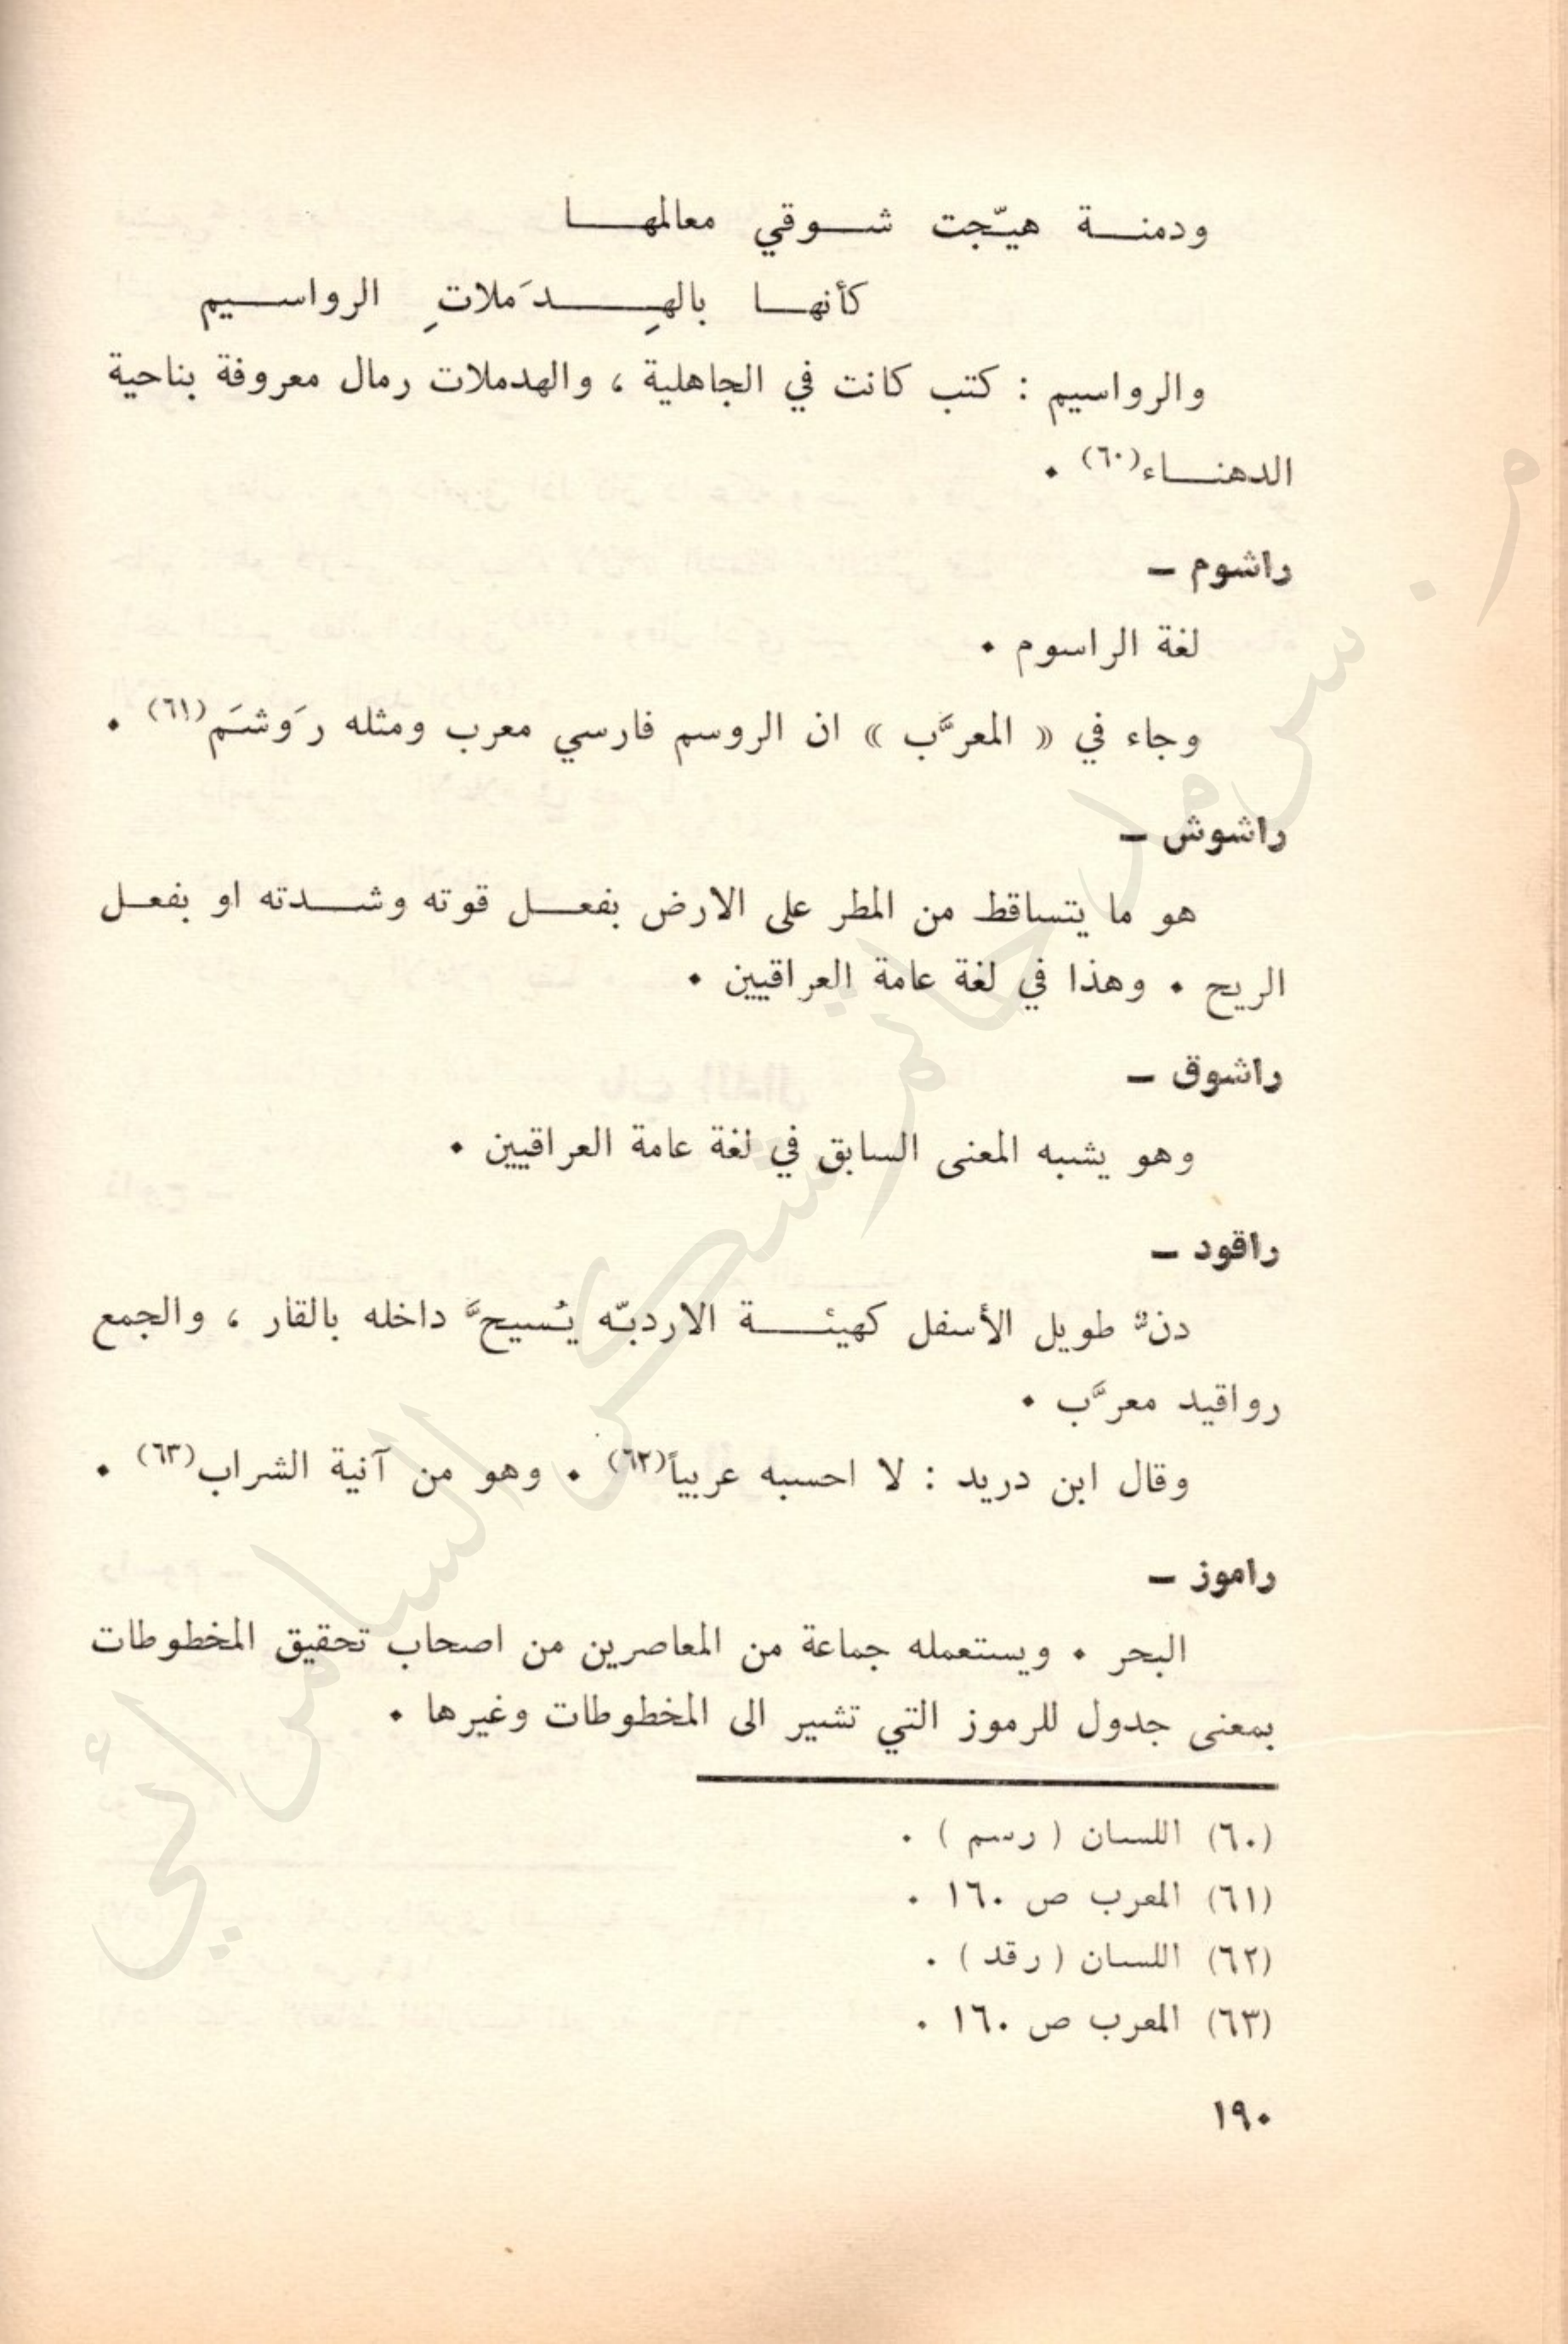 ودمنة هيّجت شوقي معالمها
كأنها بالهِدَملاتِ الرواسيم
والرواسيم : كتب كانت في الجاهلية ، والهدملات رمال معروفة بناحية
الدهناء(٦٠) .
راشوم –
لغة الراسوم .
وجاء في « المعرَّب » ان الروسم فارسي معرب ومثله رَوشَم(٦١) .
راشوش –
هو ما يتساقط من المطر على الارض بفعل قوته وشدته او بفعل
الريح . وهذا في لغة عامة العراقيين .
راشوق –
وهو يشبه المعنى السابق في لغة عامة العراقيين .
راقود –
دنٌّ طويل الأسفل كهيئة الاردبّه يُسيحَّ داخله بالقار ، والجمع
رواقيد معرَّب .
وقال ابن دريد : لا احسبه عربياً(٦٢) . وهو من آنية الشراب(٦٣) .
راموز –
البحر . ويستعمله جماعة من المعاصرين من اصحاب تحقيق المخطوطات
بمعنى جدول للرموز التي تشير الى المخطوطات وغيرها .
(٦٠) اللسان ( رسم ) .
(٦١) المعرب ص ١٦٠ .
(٦٢) اللسان ( رقد ) .
(٦٣) المعرب ص ١٦٠ .
١٩٠